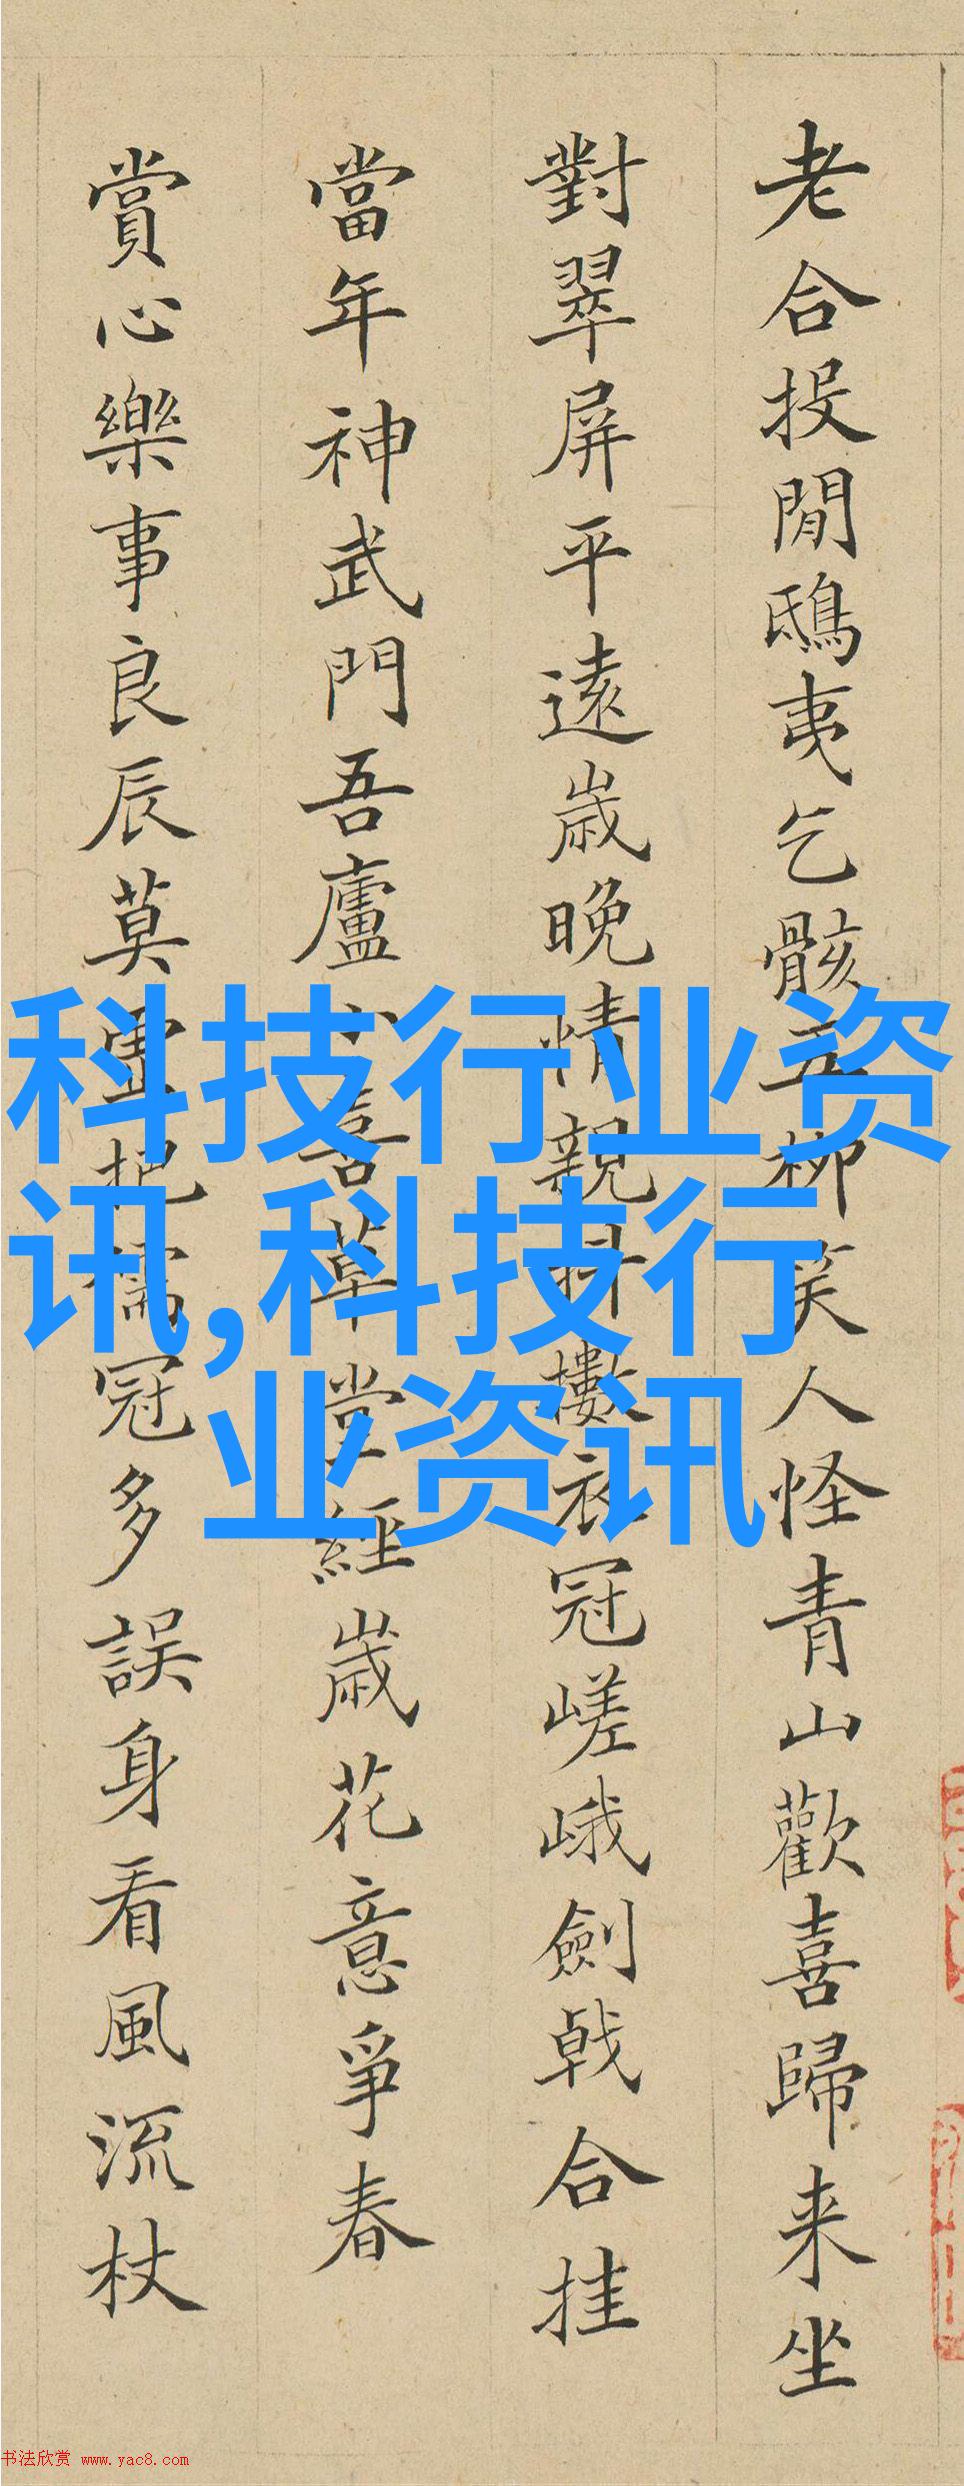 老合投閒鴟夷乞骸五柳笑人怪青山歡喜歸来坐
對翠屏平遠歲晚情親抖擻衣冠嵯峨劍戟合挂
當年神武門吾廬喜草堂經歲花意爭春
賞心樂事良辰莫虛把儒冠多誤身看風流杖
科技行业资
讯,科技行
业资讯
书法欣赏 www.yac8.com